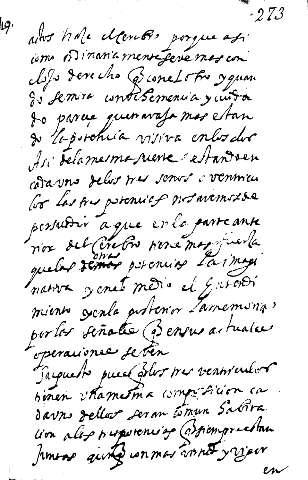 273
actos haze el Cerebro porque asi
como ordinariamente se ve mas con
el ojo derecho q̃ con el otro y quan
do se mira con vehemencia y cuida
do parece que trabaja mas estan
do la potencia visiva en los dos
Asi de la misma suerte estando en
cada uno de los tres senos o ventricu
los las tres potencias nos avemos de
persuadir a que en la parte ante
rior del Cerebro tiene mas fuerza
que las otras potencias la imagi
nativa y en el medio el Entendi
miento y en la posterior la memoria,
por las señales q̃ en sus actuales
operaciones se ven
Supuesto pues q̃ los tres ventriculos
tienen una mesma composicion ca
da uno dellos sera comun habita
cion a las tres potencias q̃ siempre estan
juntas con mas y vigor
en